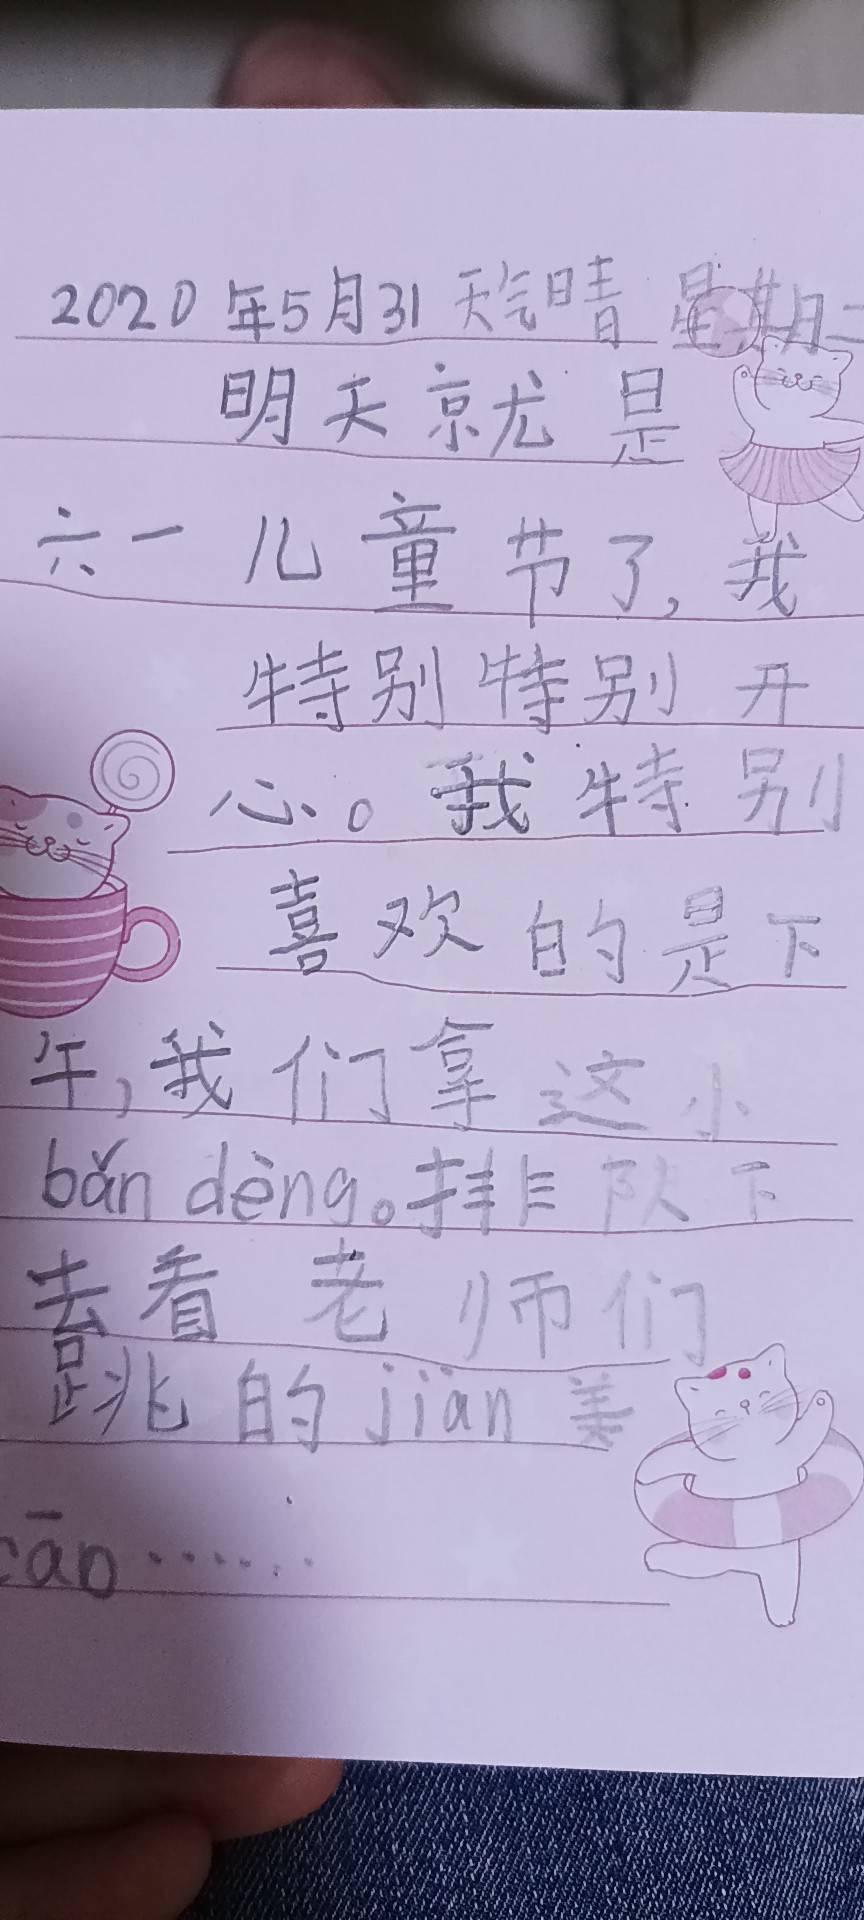 2020年5月31 天气晴 星期二
明天就是
六一儿童节了,我
特别特别开
心。我特别
喜欢的是下
午,我们拿这小
bǎn dèng。排队下
去看老师们
跳的jiān美
cāo······